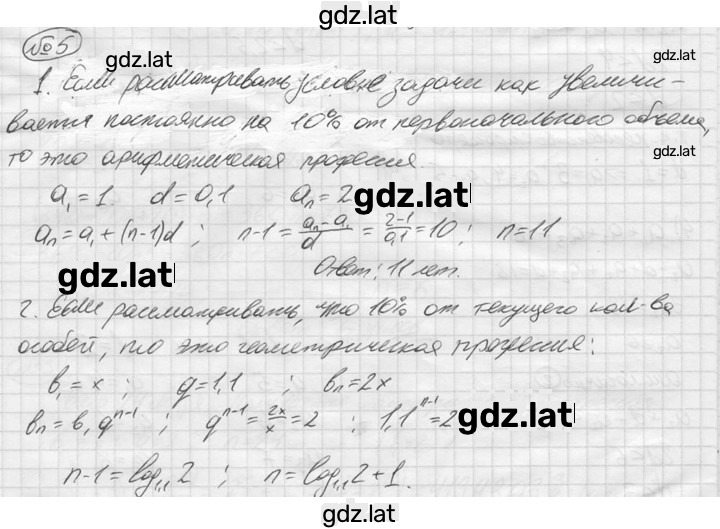 gdz.lat
№5 gdz.lat gdz.lat
1. Если рассматривать условие задачи как увеличи-
вается постоянно на 10% от первоначального объема,
то это арифметическая прогрессия. gdz.lat
a₁ = 1 d = 0,1 aₙ = 2 gdz.lat
aₙ = a₁ + (n-1)d ; n-1 = (aₙ - a₁)/d = (2-1)/0,1 = 10 ; n = 11
gdz.lat Ответ: 11 лет.
2. Если рассматривать, что 10% от текущего кол-ва
особей, то это геометрическая прогрессия:
b₁ = x ; q = 1,1 ; bₙ = 2x
bₙ = b₁qⁿ⁻¹ ; qⁿ⁻¹ = 2x/x = 2 ; 1,1ⁿ⁻¹ = 2 gdz.lat
n-1 = log₁,₁ 2 ; n = log₁,₁ 2 + 1.
gdz.lat